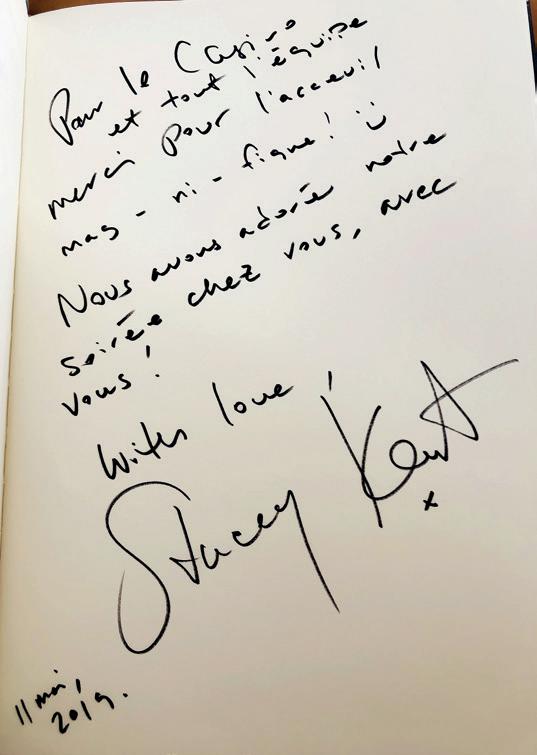 Pour le Casino
et tout l'équipe
merci pour l'acceuil
mag-ni-fique! ü
Nous avons adorée notre
soirée chez vous, avec
vous!
With love,
Stacey Kent
x
11 mai,
2019.